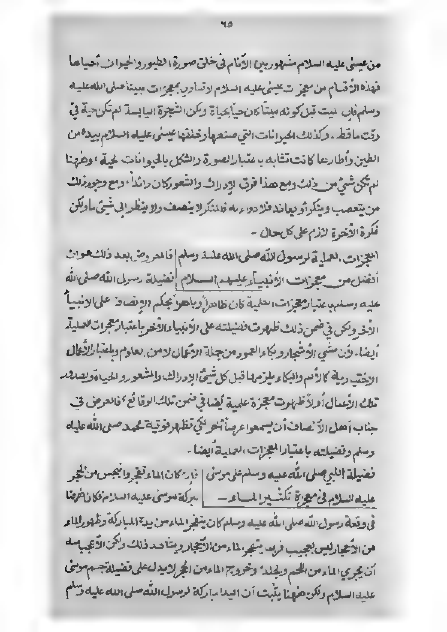 ٦٥
من عيسى عليه السلام مشهور بين الأنام فى خلق صورة الطيور والحيوان أحياءها
فهذه الأقسام من معجزات عيسى عليه السلام لا تساوي بمعجزات نبينا صلى الله عليه
وسلم فإن الميت قبل كونه ميتا كان حيا بحياة ولكن الشجرة اليابسة لم تكن حية في
وقت ما قط، وكذلك الحيوانات التي صنعها وخلقها عيسى عليه السلام بيده من
الطين وأطارها كانت تشابه باعتبار الصورة والشكل بالحيوانات الحية، وههنا
لم تكن شيئ من ذلك ومع هذا فرق الإدراك والشعور كان زائدا، ومع وجود ذلك
من يتعصب وينكر أو يعاند فلا دواء له فالمنكر لا ينصف ولا ينظر إلى شيئ ما ولكن
فكرة الأخرة لازم على كل حال ـ
المعجزات العملية لرسول الله صلى الله عليه وسلم فالمعروض بعد ذلك هو أن
أفضل من معجزات الأنبياء عليهم السلام فضيلة رسول الله صلى الله
عليه وسلم باعتبار معجزات العلمية كان ظاهرا وباهرا بحكم الإنصاف على الأنبياء
الأخر ولكن في ضمن ذلك ظهرت فضيلته على الأنبياء الأخر باعتبار معجزات العملية
أيضا، لأن مشي الأشجار وبكاء العمود من جملة الأعمال لا من العلوم وباعتبار الأعمال
الاختيارية كالألم والبكاء يلزمها قبل كل شيئ الإدراك والشعور والحياة وبصدور
تلك الأعمال أولا ظهرت معجزة علمية أيضا في ضمن تلك الوقائع، فالعرض في
جناب أهل الأنصاف أن يسمعوا عرضا أخر لكي تظهر فوقية محمد صلى الله عليه
وسلم وفضيلته باعتبار المعجزات العملية أيضا.
فضيلة النبي صلى الله عليه وسلم على موسى فإن كان الماء تفجر وانبجس من الحجر
عليه السلام في معجزة تكثير الماء ـ ببركة موسى عليه السلام فكان أخرها
في وقعة رسول الله صلى الله عليه وسلم كان يتفجر الماء من يده المباركة وظهور الماء
من الأحجار ليس بعجيب فربما يتفجر الماء من الأحجار ويشاهد ذلك ولكن الأعجب
أن يجري الماء من اللحم والجلد، وخروج الماء من الحجر لا يدل على فضيلة جسم موسى
عليه السلام ولكن ههنا يثبت أن اليد المباركة لرسول الله صلى الله عليه وسلم